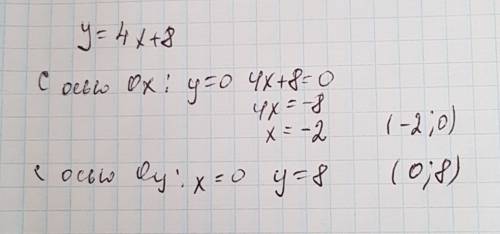 y=4x+8
С осью Ox: y=0 4x+8=0
4x=-8
x=-2 (-2;0)
с осью Oy: x=0 y=8 (0;8)